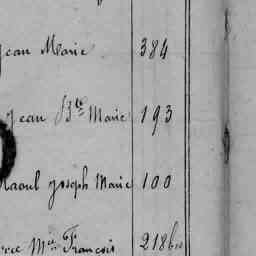 Jean Marie 384
Jean Bte Marie 193
Raoul Joseph Marie 100
Mie Francois 218 bis